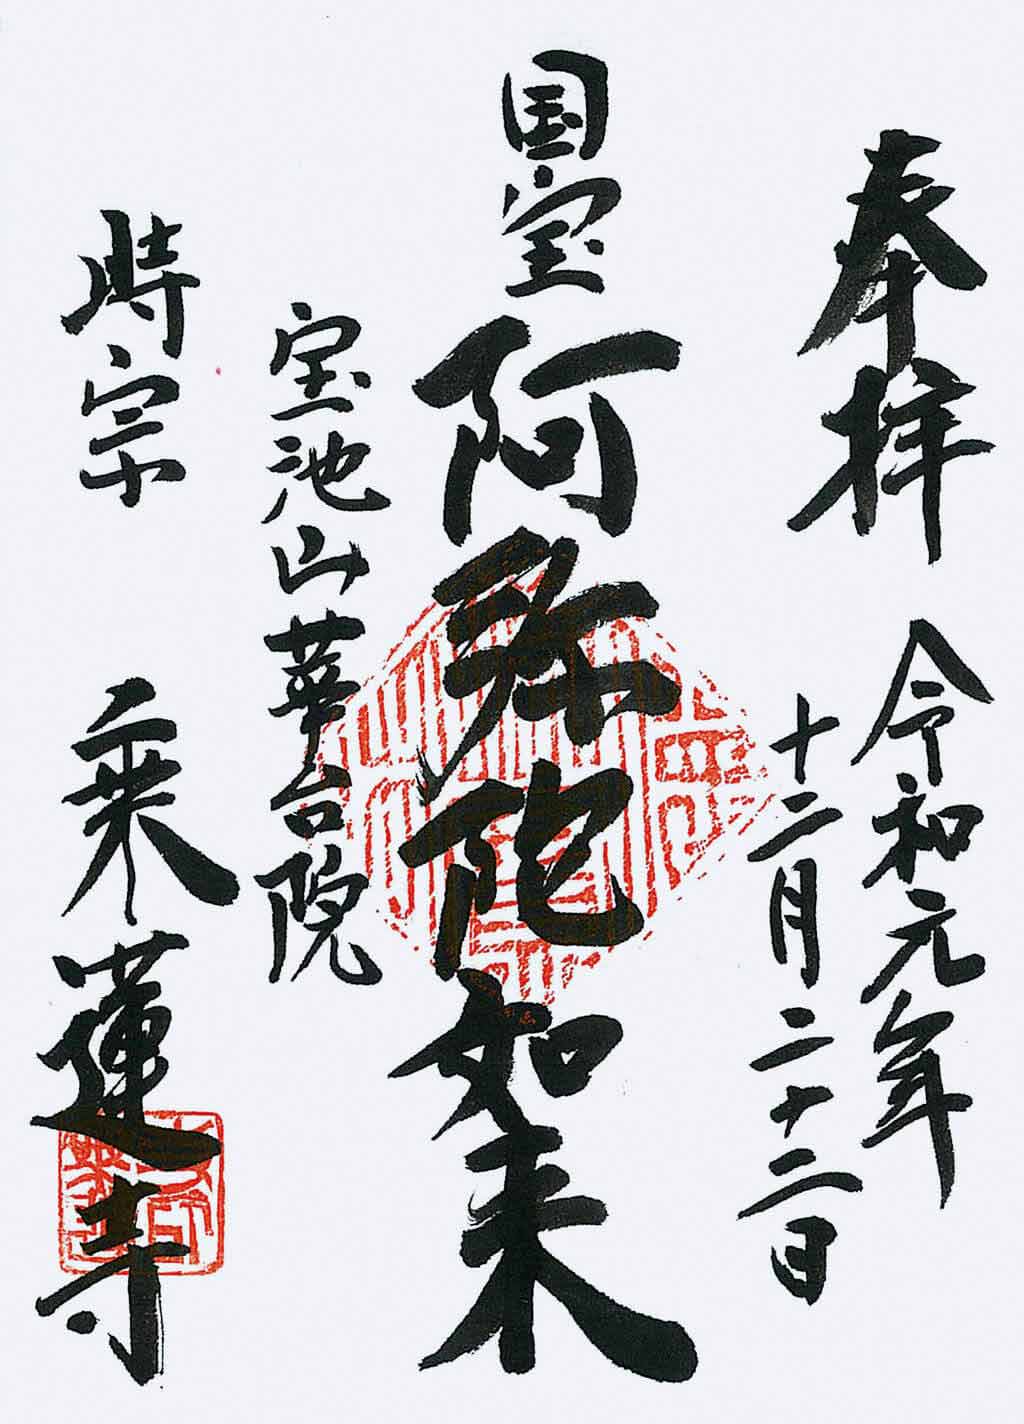 奉拝
令和元年
十二月二十二日
国宝
阿弥陀如来
宝池山華台院
時宗
乗蓮寺